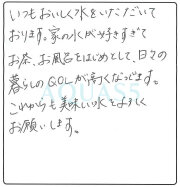 いつもおいしく水をいただいて
おります。家の水が好きすぎて
お茶、お風呂をはじめとして、日々の
暮らしのQOLが高くなってます。
これからも美味しい水をよろしく
お願いします。
AQUAS5